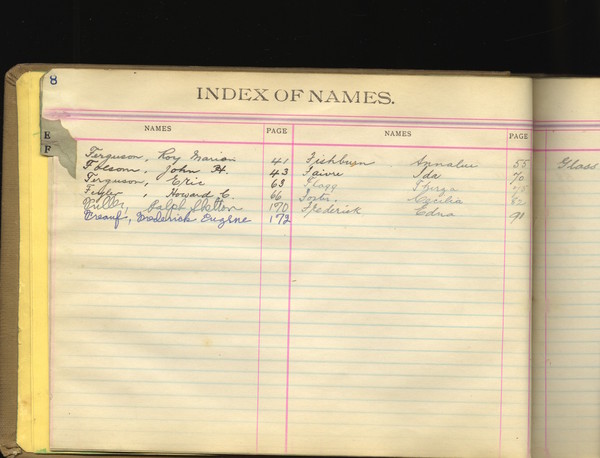 8
INDEX OF NAMES.
E
F
NAMES PAGE NAMES PAGE
Ferguson, Roy Marian 41 Fishburn Annalue 55 Glass
Folsom, John H. 43 Faivre Ida 70
Ferguson, Eric 63 Flagg
Howard C. 66 Foster, Cecilia
Fuller, Ralph Shelton 170 Frederick Edna 91
Frederick Eugene 172